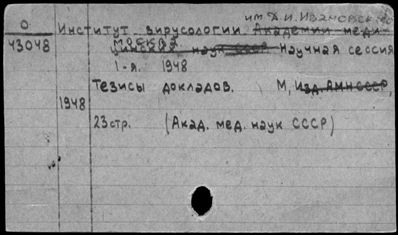 им. Д. И. Ивановского
О Институт вирусологии Академии меди-
43048 Москва
цинских наук СССР Научная сессия
1-я. 1948
Тезисы докладов. М, Изд. АМН СССР,
1948
23 стр. (Акад. мед. наук СССР)